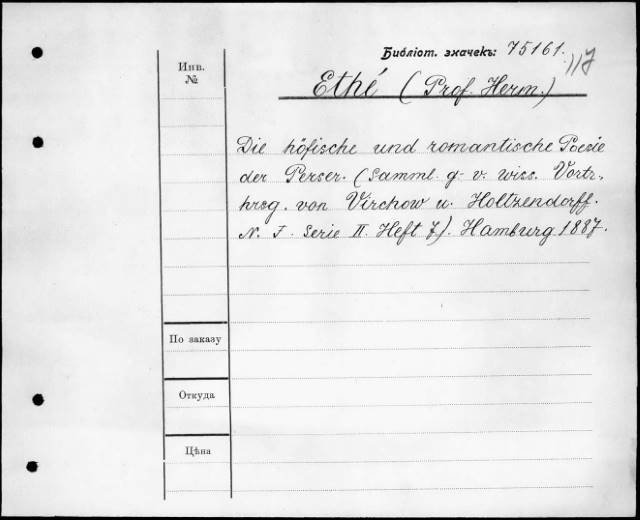 Библіот. значекъ: 75161.
117
Инв.
№
Ethé (Prof. Herm.)
Die höfische und romantische Poesie
der Perser. (Samml. g. v. wiss. Vortr.
hrsg. von Virchow u. Holtzendorff.
N. F. Serie II. Heft 7). Hamburg 1887.
По заказу
Откуда
Цѣна